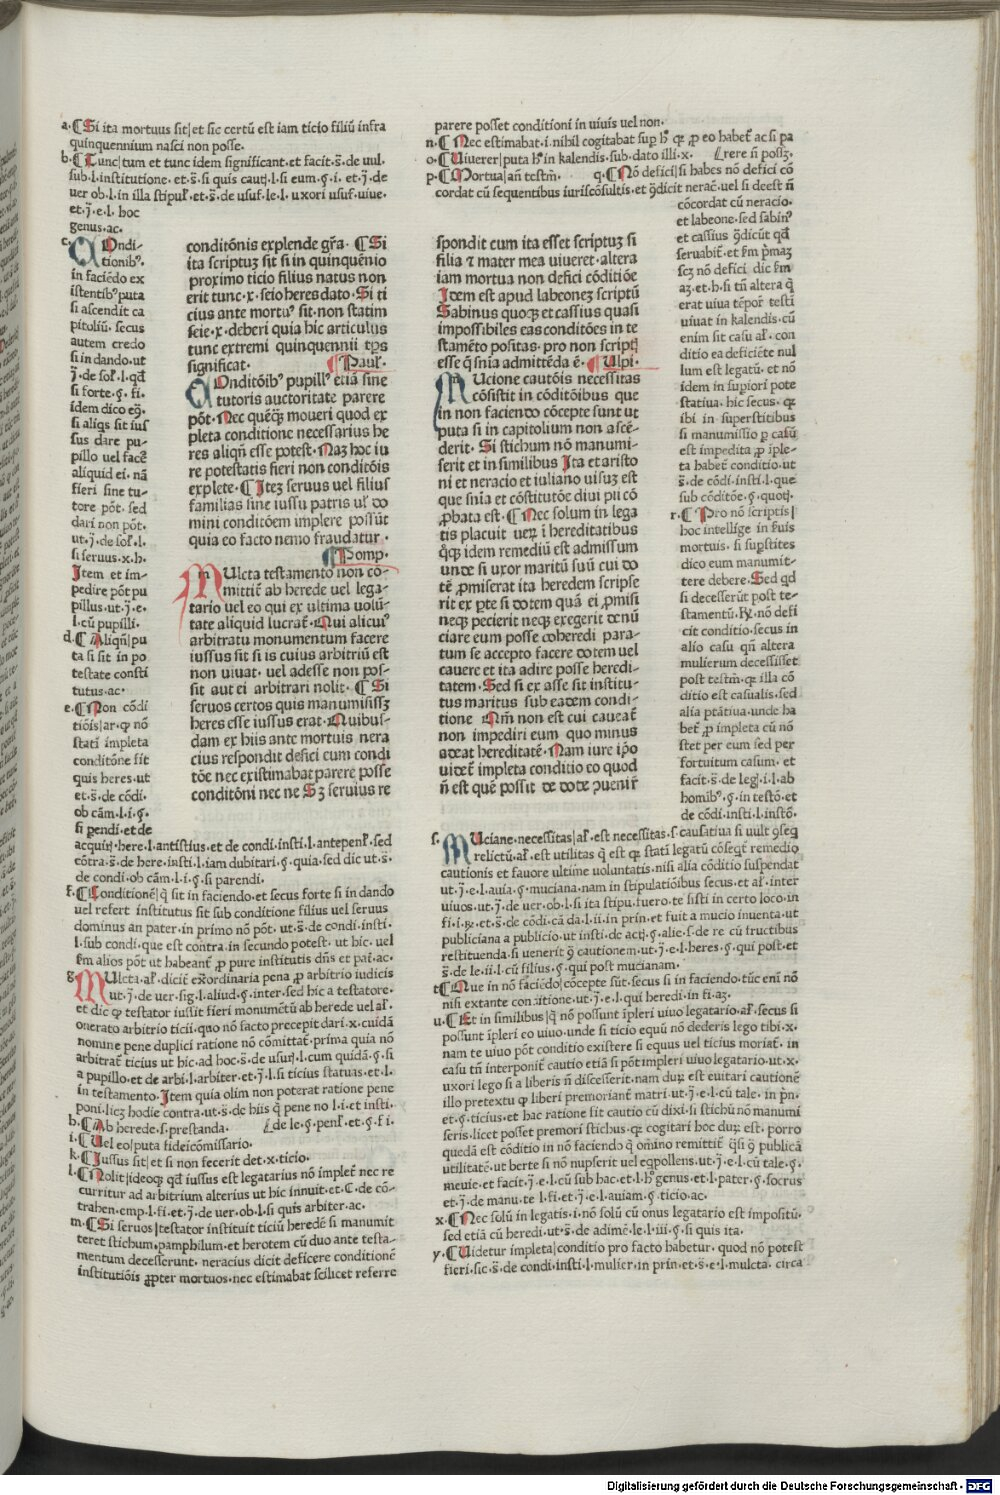 a·¶Si ita mortuus sit|et sic certū est iam ticio filiū infra
quinquennium nasci non posse·
b·¶Tunc|tum et tunc idem significant·et facit·s̄·de vul·
sub·l·institutione·et·s̄·si quis cautj·l·si eum·§·i·et·j̄·de
uer ob·l·in illa stipul̓·et·s̄·de usuf·le·l·uxori usuf·uiue·
et·j̄·e·l·hoc
genus·ac·
c·COndi-
tionib⁹·
in faciēdo ex
istentib⁹ puta
si ascendit ca
pitoliū· secus
autem credo
si in dando·ut
j̄·de sol̓·l·qd̄
si forte·§·fi·
idem dico eq̄·
si aliqs sit ius
sus dare pu-
pillo uel facē
aliquid ei·nā
fieri sine tu-
tore pōt· sed
dari non pōt·
ut·j̄·de sol̓·l·
si seruus·x·h·
Item et im-
pedire pōt pu
pillus·ut·j̄·e·
l·cū pupilli·
d·¶Aliqñ|pu
ta si sit in po
testate consti
tutus·ac·
e·¶Non cōdi
tiōis|ar·ꝙ nō
stati impleta
conditōne sit
quis heres·ut
et·s̄·de cōdi·
ob cām·l·i·§·
si pendi·et de
acquir·here·l·antistius·et de condi·insti·l·antepen̓·sed
cōtra·s̄·de here·insti·l·iam dubitari·§·quia·sed dic ut·s̄·
de condi·ob cām·l·i·§·si parendi·
f·¶Conditionē|q̄ sit in faciendo·et secus forte si in dando
uel refert institutus sit sub conditione filius uel seruus
dominus an pater·in primo nō pōt·ut·s̄·de condi·insti·
l·sub condi·que est contra·in secundo potest·ut hic·uel
s̄m alios pōt ut habeant̄ ꝓ pure institutis dn̄s et pat̄·ac·
g·MUlcta·al̓·dicit̄ ex̄ordinaria pena ꝓ arbitrio iudicis
ut·j̄·de uer·sig·l·aliud·§·inter·sed hic a testatore·
et dic ꝙ testator iussit fieri monumētū ab herede uel al̓·
onerato arbitrio ticii·quo nō facto precepit dari·x·cuidā
nomine pene duplici ratione nō cōmittat̄·prima quia nō
arbitrat̄ ticius ut hic·ad hoc·s̄·de usurj·l·cum quidā·§·si
a pupillo·et de arbi·l·arbiter·et·j̄·l·si ticius statuas·et·l·
in testamento·Item quia olim non poterat ratione pene
poni·licꝫ hodie contra·ut·s̄·de hiis q̄ pene no·l·i·et insti·
h·¶Ab herede·s·prestanda· de le·§·pen̓·et·§·fi·
i·¶Uel eo|puta fideicōmissario·
k·¶Iussus sit|et si non fecerit det·x·ticio·
l·¶Nolit|ideoqꝫ qd̄ iussus est legatarius nō implet̄ nec re
curritur ad arbitrium alterius ut hic innuit·et·C·de cō-
trahen·emp·l·fi·et·j̄·de uer·ob·l·si quis arbiter·ac·
m·¶Si seruos|testator instituit ticiū heredē si manumit
teret stichum·pamphilum·et herotem cū duo ante testa-
mentum decesserunt·neracius dicit deficere conditionē
institutiōis ꝓpter mortuos·nec estimabat scilicet referre
conditōnis explende gr̄a· ¶Si
ita scriptuꝫ sit si in quinquēnio
proximo ticio filius natus non
erit tunc·x·seio heres dato·Si ti
cius ante mortu⁹ sit·non statim
seie·x·deberi quia hic articulus
tunc extremi quinquennii tp̄s
significat· ¶Paul̓·
COnditōib⁹ pupill⁹ etiā sine
tutoris auctoritate parere
pōt·Nec quēqꝫ moueri quod ex
pleta conditione necessarius he
res aliqn̄ esse potest·Naꝫ hoc iu
re potestatis fieri non conditōis
explete·¶Iteꝫ seruus uel filius
familias sine iussu patris ul̓ do
mini conditōem implere possūt
quia eo facto nemo fraudatur·
¶Pomp·
MUlcta testamento non cō-
mittit̄ ab herede uel lega-
tario uel eo qui ex ultima uolū-
tate aliquid lucrat̄·Qui alicui⁹
arbitratu monumentum facere
iussus sit si is cuius arbitriū est
non uiuat· uel adesse non pos-
sit aut ei arbitrari nolit· ¶Si
seruos certos quis manumisisꝫ
heres esse iussus erat·Quibus-
dam ex hiis ante mortuis nera
cius respondit defici eum condi
tōe nec existimabat parere posse
conditōni nec ne Sꝫ seruius re
parere posset conditioni in uiuis uel non·
n·¶Nec estimabat·i·nihil cogitabat suꝑ h⁹ qꝫ ꝓ eo habet̄ ac si pa
o·¶Uiuerer|puta h⁹ in kalendis·sub·dato illi·x· rere n̄ possꝫ·
p·¶Mortua|an̄ testm̄· q·¶Nō defici|si habes nō defici cō
cordat cū sequentibus iuriscōsultis·et ꝯdicit nerac̄·uel si deest n̄
cōcordat cū neracio·
et labeone·sed sabin⁹
et cassius ꝯdicūt qd̄
seruabit̄·et s̄m p̄maꝫ
scꝫ nō defici dic s̄m
aꝫ·et·h·si tn̄ altera q̄
erat uiua tēpor̄ testi
uiuat in kalendis·cū
enim sit casu al̓·con
ditio ea deficiēte nul
lum est legatū·et nō
idem in suꝑiori pote
statiua·hic secus·qꝫ
ibi in superstitibus
si manumissio ꝑ casū
est impedita ꝓ iple-
ta habet̄ conditio·ut
s̄·de cōdi·insti·l·que
sub cōditōe·§·quotj·
r·¶Pro nō scriptis|
hoc intellige in suis
mortuis· si suꝑstites
dico eum manumit-
tere debere·Sed qd̄
si decesserūt post te-
stamentū·R̄·nō defi
cit conditio·secus in
alio casu qn̄ altera
mulierum decessisset
post testm̄·qꝫ illa cō
ditio est casualis·sed
alia ptātiua·unde ha
bet̄ ꝓ impleta cū nō
stet per eum sed per
fortuitum casum·et
facit·s̄·de leg·i·l·ab
homib⁹·§·in testō·et
de cōdi·insti·l·instō·
spondit eum ita esset scriptuꝫ si
filia ⁊ mater mea uiueret·altera
iam mortua non defici cōditiōe
Idem est apud labeoneꝫ scriptū
Sabinus quoqꝫ et cassius quasi
impossibiles eas conditōes in te
stamēto positas·pro non scriptj
esse q̄ sn̄ia admittēda ē·¶Ulpi·
MUcione cautōis necessitas
cōsistit in cōditōibus que
in non faciendo cōcepte sunt ut
puta si in capitolium non ascē-
derit· Si stichum nō manumi-
serit et in similibus Ita et aristo
ni et neracio et iuliano uisuꝫ est
que sn̄ia et cōstitutōe diui pii cō
ꝓbata est·¶Nec solum in lega
tis placuit ueꝝ ī hereditatibus
q̄qꝫ idem remediū est admissum
unde si uxor maritū suū cui do
tē ꝓmiserat ita heredem scripse
rit ex ꝑte si dotem quā ei ꝓmisi
neqꝫ pecierit neqꝫ exegerit denū
ciare eum posse coheredi para-
tum se accepto facere dotem uel
cauere et ita adire posse heredi-
tatem·Sed si ex asse sit institu-
tus maritus sub eadem condi-
tione Qm̄ non est cui caueat̄
non impediri eum quo minus
adeat hereditatē·Nam iure ip̄o
uidet̄ impleta conditio eo quod
n̄ est quē possit de dote ꝯuenir̄
s·MUciane·necessitas|al̓·est necessitas·s·causatiua si uult ꝯseq̄
relictū·al̓·est utilitas q̄ est qꝫ stati legatū cōseqt̄ remedio
cautionis et fauore ultime uoluntatis·nisi alia cōditio suspendat
ut·j̄·e·l·auia·§·muciana·nam in stipulatiōibus secus·et al̓·inter
uiuos·ut·j̄·de uer·ob·l·si ita stipu·fuero·te sisti in certo loco·in
fi·i·ꝶ·et·s̄·de cōdi·cā da·l·ii·in prin·et fuit a mucio inuenta·ut
publiciana a publicio·ut insti·de actj·§·alie·s·de re cū fructibus
restituenda·si uenerit ꝯ̄ cautionem·ut·j̄·e·l·heres·§·qui post·et
s̄·de le·ii·l·cū filius·§·qui post mucianam·
t·¶Que in nō faciēdo|cōcepte sūt·secus si in faciendo·tūc eni nō
nisi extante conditione·ut·j̄·e·l·qui heredi·in fi·aꝫ·
u·¶Et in similibus|q̄ nō possunt īpleri uiuo legatario·al̓·secus si
possunt īpleri eo uiuo·unde si ticio equū nō dederis lego tibi·x·
nam te uiuo pōt conditio existere si equus uel ticius moriat̄·in
casu tn̄ interponit̄ cautio etiā si pōt impleri uiuo legatario·ut·x·
uxori lego si a liberis n̄ discesserit·nam duꝝ est euitari cautionē
illo pretextu ꝙ liberi premoriant̄ matri·ut·j̄·e·l·cū tale·in p̄n·
et·§·ticius·et hac ratione sit cautio cū dixi·si stichū nō manumi
seris·licet posset premori stichus·qꝫ cogitari hoc duꝝ est·porro
quedā est cōditio in nō faciendo q̄ om̄ino remittit̄ q̄si ꝯ̄ publicā
utilitatē·ut berte si nō nupserit uel eqpollens·ut·j̄·e·l·cū tale·§·
meuie·et facit·j̄·e·l·cū sub hac·et·l·h⁹ genus·et·l·pater·§·socrus
et·j̄·de manu·te·l·fi·et·j̄·e·l·auiam·§·ticio·ac·
x·¶Nec solū in legatis·i·nō solū cū onus legatario est impositū·
sed etiā cū heredi·ut·s̄·de adimē·le·l·iii·§·si quis ita·
y·¶Uidetur impleta|conditio pro facto habetur· quod nō potest
fieri·sic·s̄·de condi·insti·l·mulier·in prin·et·s̄·e·l·mulcta· circa
Digitalisierung gefördert durch die Deutsche Forschungsgemeinschaft - DFG